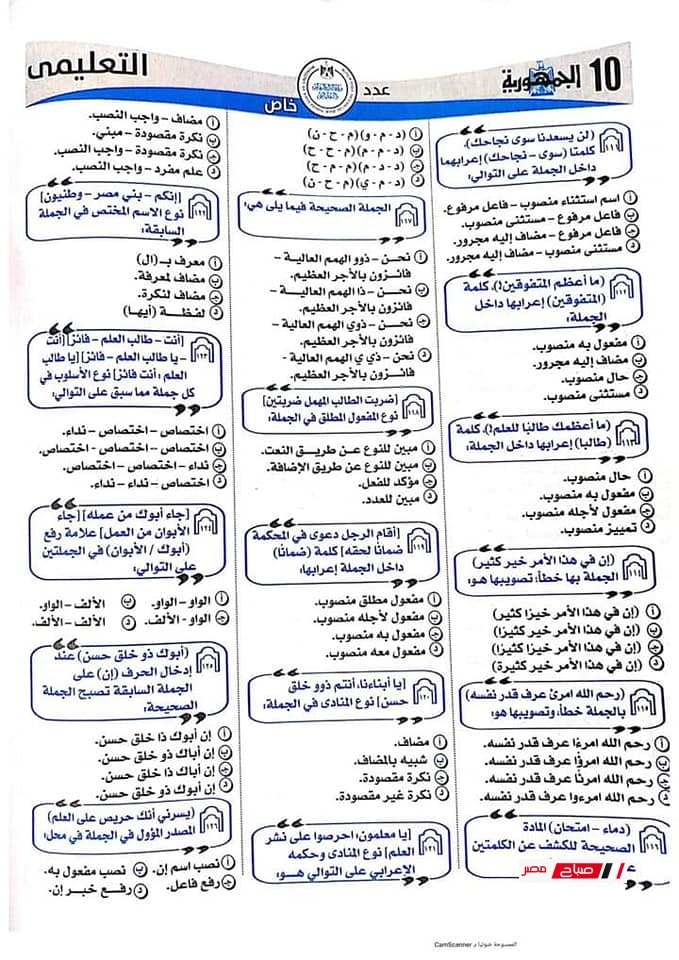 10 الجمهورية
عدد
خاص
التعليمى
١١١
(لن يسعدنا سوى نجاحك)،
كلمتا (سوى - نجاحك) إعرابهما
داخل الجملة على التوالي:
أ اسم استثناء منصوب - فاعل مرفوع.
ب فاعل مرفوع - مستثنى منصوب.
ج فاعل مرفوع - مضاف إليه مجرور.
د مستثنى منصوب - مضاف إليه مجرور.
١١٢
(ما أعظم المتفوقين!)، كلمة
(المتفوقين) إعرابها داخل
الجملة:
أ مفعول به منصوب.
ب مضاف إليه مجرور.
ج حال منصوب.
د مستثنى منصوب.
١١٣
(ما أعظمك طالبًا للعلم!)، كلمة
(طالبا) إعرابها داخل الجملة:
أ حال منصوب.
ب مفعول به منصوب.
ج مفعول لأجله منصوب.
د تمييز منصوب.
١١٤
(إن في هذا الأمر خير كثير)
الجملة بها خطأ؛ تصويبها هو:
أ (إن في هذا الأمر خيرًا كثير)
ب (إن في هذا الأمر خير كثيرًا)
ج (إن في هذا الأمر خيرًا كثيرًا)
د (إن في هذا الأمر خير كثيرة)
١١٥
(رحم الله امرئ عرف قدر نفسه)
بالجملة خطأ، وتصويبها هو:
أ رحم الله امرءًا عرف قدر نفسه.
ب رحم الله امرؤًا عرف قدر نفسه.
ج رحم الله امرئًا عرف قدر نفسه.
د رحم الله امرءوا عرف قدر نفسه.
١١٦
(دماء - امتحان) المادة
الصحيحة للكشف عن الكلمتين
صباح مصر
أ (د - م - و) (م - ح - ن)
ب (د - م - م) (م - ح - ح)
ج (د - د - م) (م - م - ح)
د (د - م - ي) (م - ح - ن)
١١٧
الجملة الصحيحة فيما يلي هي:
أ نحن - ذوو الهمم العالية -
فائزون بالأجر العظيم.
ب نحن - ذا الهمم العالية -
فائزون بالأجر العظيم.
ج نحن - ذوي الهمم العالية -
فائزون بالأجر العظيم.
د نحن - ذي ي الهمم العالية -
فائزون بالأجر العظيم.
١١٨
[ضربت الطالب المهمل ضربتين]
نوع المفعول المطلق في الجملة:
أ مبين للنوع عن طريق النعت.
ب مبين للنوع عن طريق الإضافة.
ج مؤكد للفعل.
د مبين للعدد.
١١٩
[أقام الرجل دعوى في المحكمة
ضمانًا لحقه] كلمة (ضمانًا)
داخل الجملة إعرابها:
أ مفعول مطلق منصوب.
ب مفعول لأجله منصوب.
ج مفعول به منصوب.
د مفعول معه منصوب.
١٢٠
[يا أبناءنا، أنتم ذوو خلق
حسن] نوع المنادى في الجملة:
أ مضاف.
ب شبيه بالمضاف.
ج نكرة مقصودة.
د نكرة غير مقصودة.
١٢١
[يا معلمون، احرصوا على نشر
العلم] نوع المنادى وحكمه
الإعرابي على التوالي هو:
أ مضاف - واجب النصب.
ب نكرة مقصودة - مبني.
ج نكرة مقصودة - واجب النصب.
د علم مفرد - واجب النصب.
١٢٢
[إنكم - بني مصر - وطنيون]
نوع الاسم المختص في الجملة
السابقة:
أ معرف بـ (ال)
ب مضاف لمعرفة.
ج مضاف لنكرة.
د لفظة (أيها)
١٢٣
[أنت - طالب العلم - فائز] [أنت
- يا طالب العلم - فائز] [يا طالب
العلم : أنت فائز] نوع الأسلوب في
كل جملة مما سبق على التوالي:
أ اختصاص - اختصاص - نداء.
ب اختصاص - اختصاص - اختصاص.
ج نداء - اختصاص - اختصاص.
د اختصاص - نداء - نداء.
١٢٤
[جاء أبوك من عمله] [جاء
الأبوان من العمل] علامة رفع
(أبوك / الأبوان) في الجملتين
على التوالي:
أ الواو - الواو. ب الألف - الواو.
ج الواو - الألف. د الألف - الألف.
١٢٥
(أبوك ذو خلق حسن) عند
إدخال الحرف (إن) على
الجملة السابقة تصبح الجملة
الصحيحة:
أ إن أبوك ذا خلق حسن.
ب إن أباك ذو خلق حسن.
ج إن أباك ذا خلق حسن.
د إن أبوك ذو خلق حسن.
١٢٦
(يسرني أنك حريص على العلم)
المصدر المؤول في الجملة في محل:
أ نصب اسم إن. ب نصب مفعول به.
ج رفع فاعل. د رفع خبر إن.
الممسوحة ضوئيا بـ CamScanner